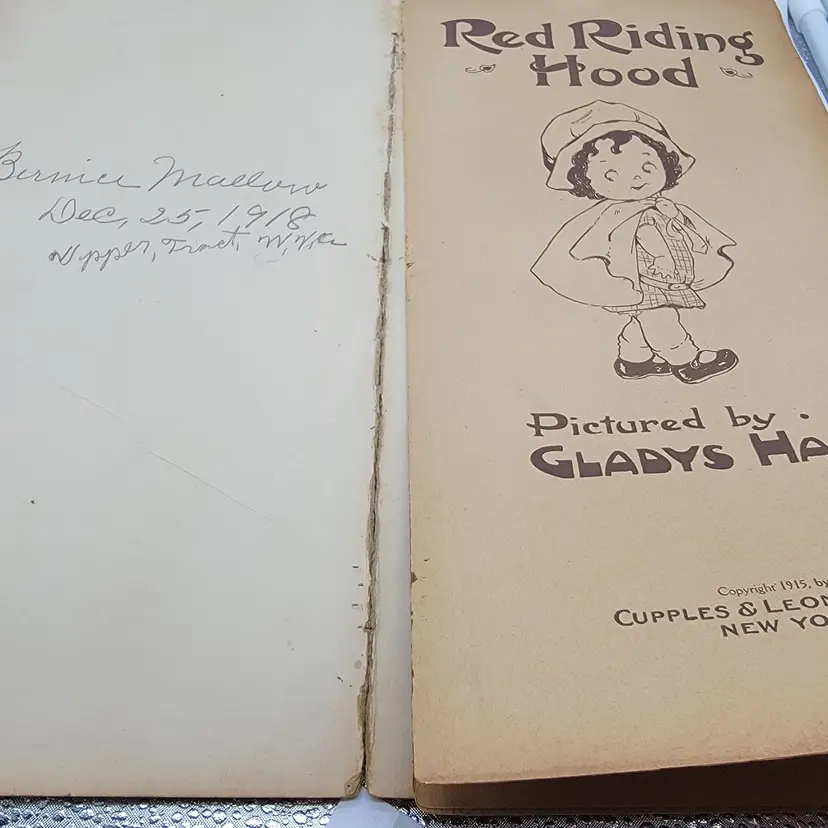 Bernice Mallow
Dec, 25, 1918
Upper, Tract, W, Va
Red Riding
Hood
Pictured by .
GLADYS HA
Copyright 1915, by
CUPPLES & LEON
NEW YO